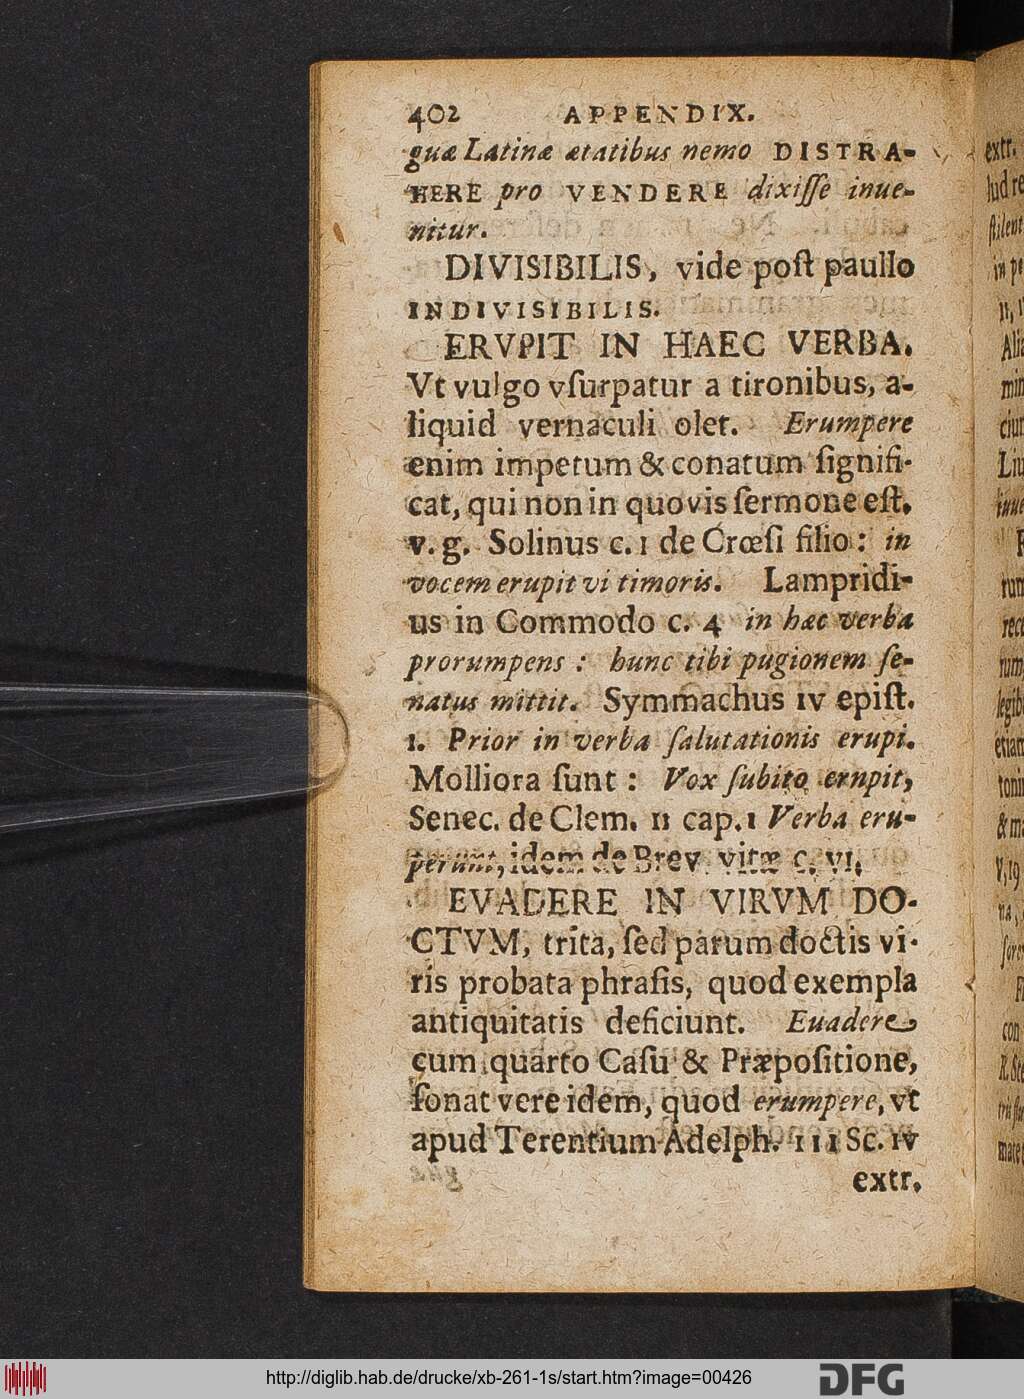 402 APPENDIX.
guæ Latinæ ætatibus nemo DISTRA-
HERE pro VENDERE dixiſſe inue-
nitur.
DIVISIBILIS, vide poſt paullo
INDIVISIBILIS.
ERVPIT IN HAEC VERBA.
Vt vulgo vſurpatur a tironibus, a-
liquid vernaculi olet. Erumpere
enim impetum & conatum ſignifi-
cat, qui non in quovis ſermone eſt,
v. g. Solinus c. 1 de Crœſi filio: in
vocem erupit vi timoris. Lampridi-
us in Commodo c. 4 in hæc verba
prorumpens: hunc tibi pugionem ſe-
natus mittit. Symmachus IV epiſt.
1. Prior in verba ſalutationis erupi.
Molliora ſunt: Vox ſubito erupit,
Senec. de Clem. II cap. 1 Verba eru-
perunt, idem de Brev. vitæ c. VI.
EVADERE IN VIRVM DO-
CTVM, trita, ſed parum doctis vi-
ris probata phraſis, quod exempla
antiquitatis deficiunt. Euadere
cum quarto Caſu & Præpoſitione,
ſonat vere idem, quod erumpere, vt
apud Terentium Adelph. III Sc. IV
extr.
extr.
lud re
ſtilent
in pe
Alia
min
ciur
Liu
inue
tun
rece
rum
legib
etiam
toni
& ma
V, 19
na,
ſore
con
mare
http://diglib.hab.de/drucke/xb-261-1s/start.htm?image=00426
DFG